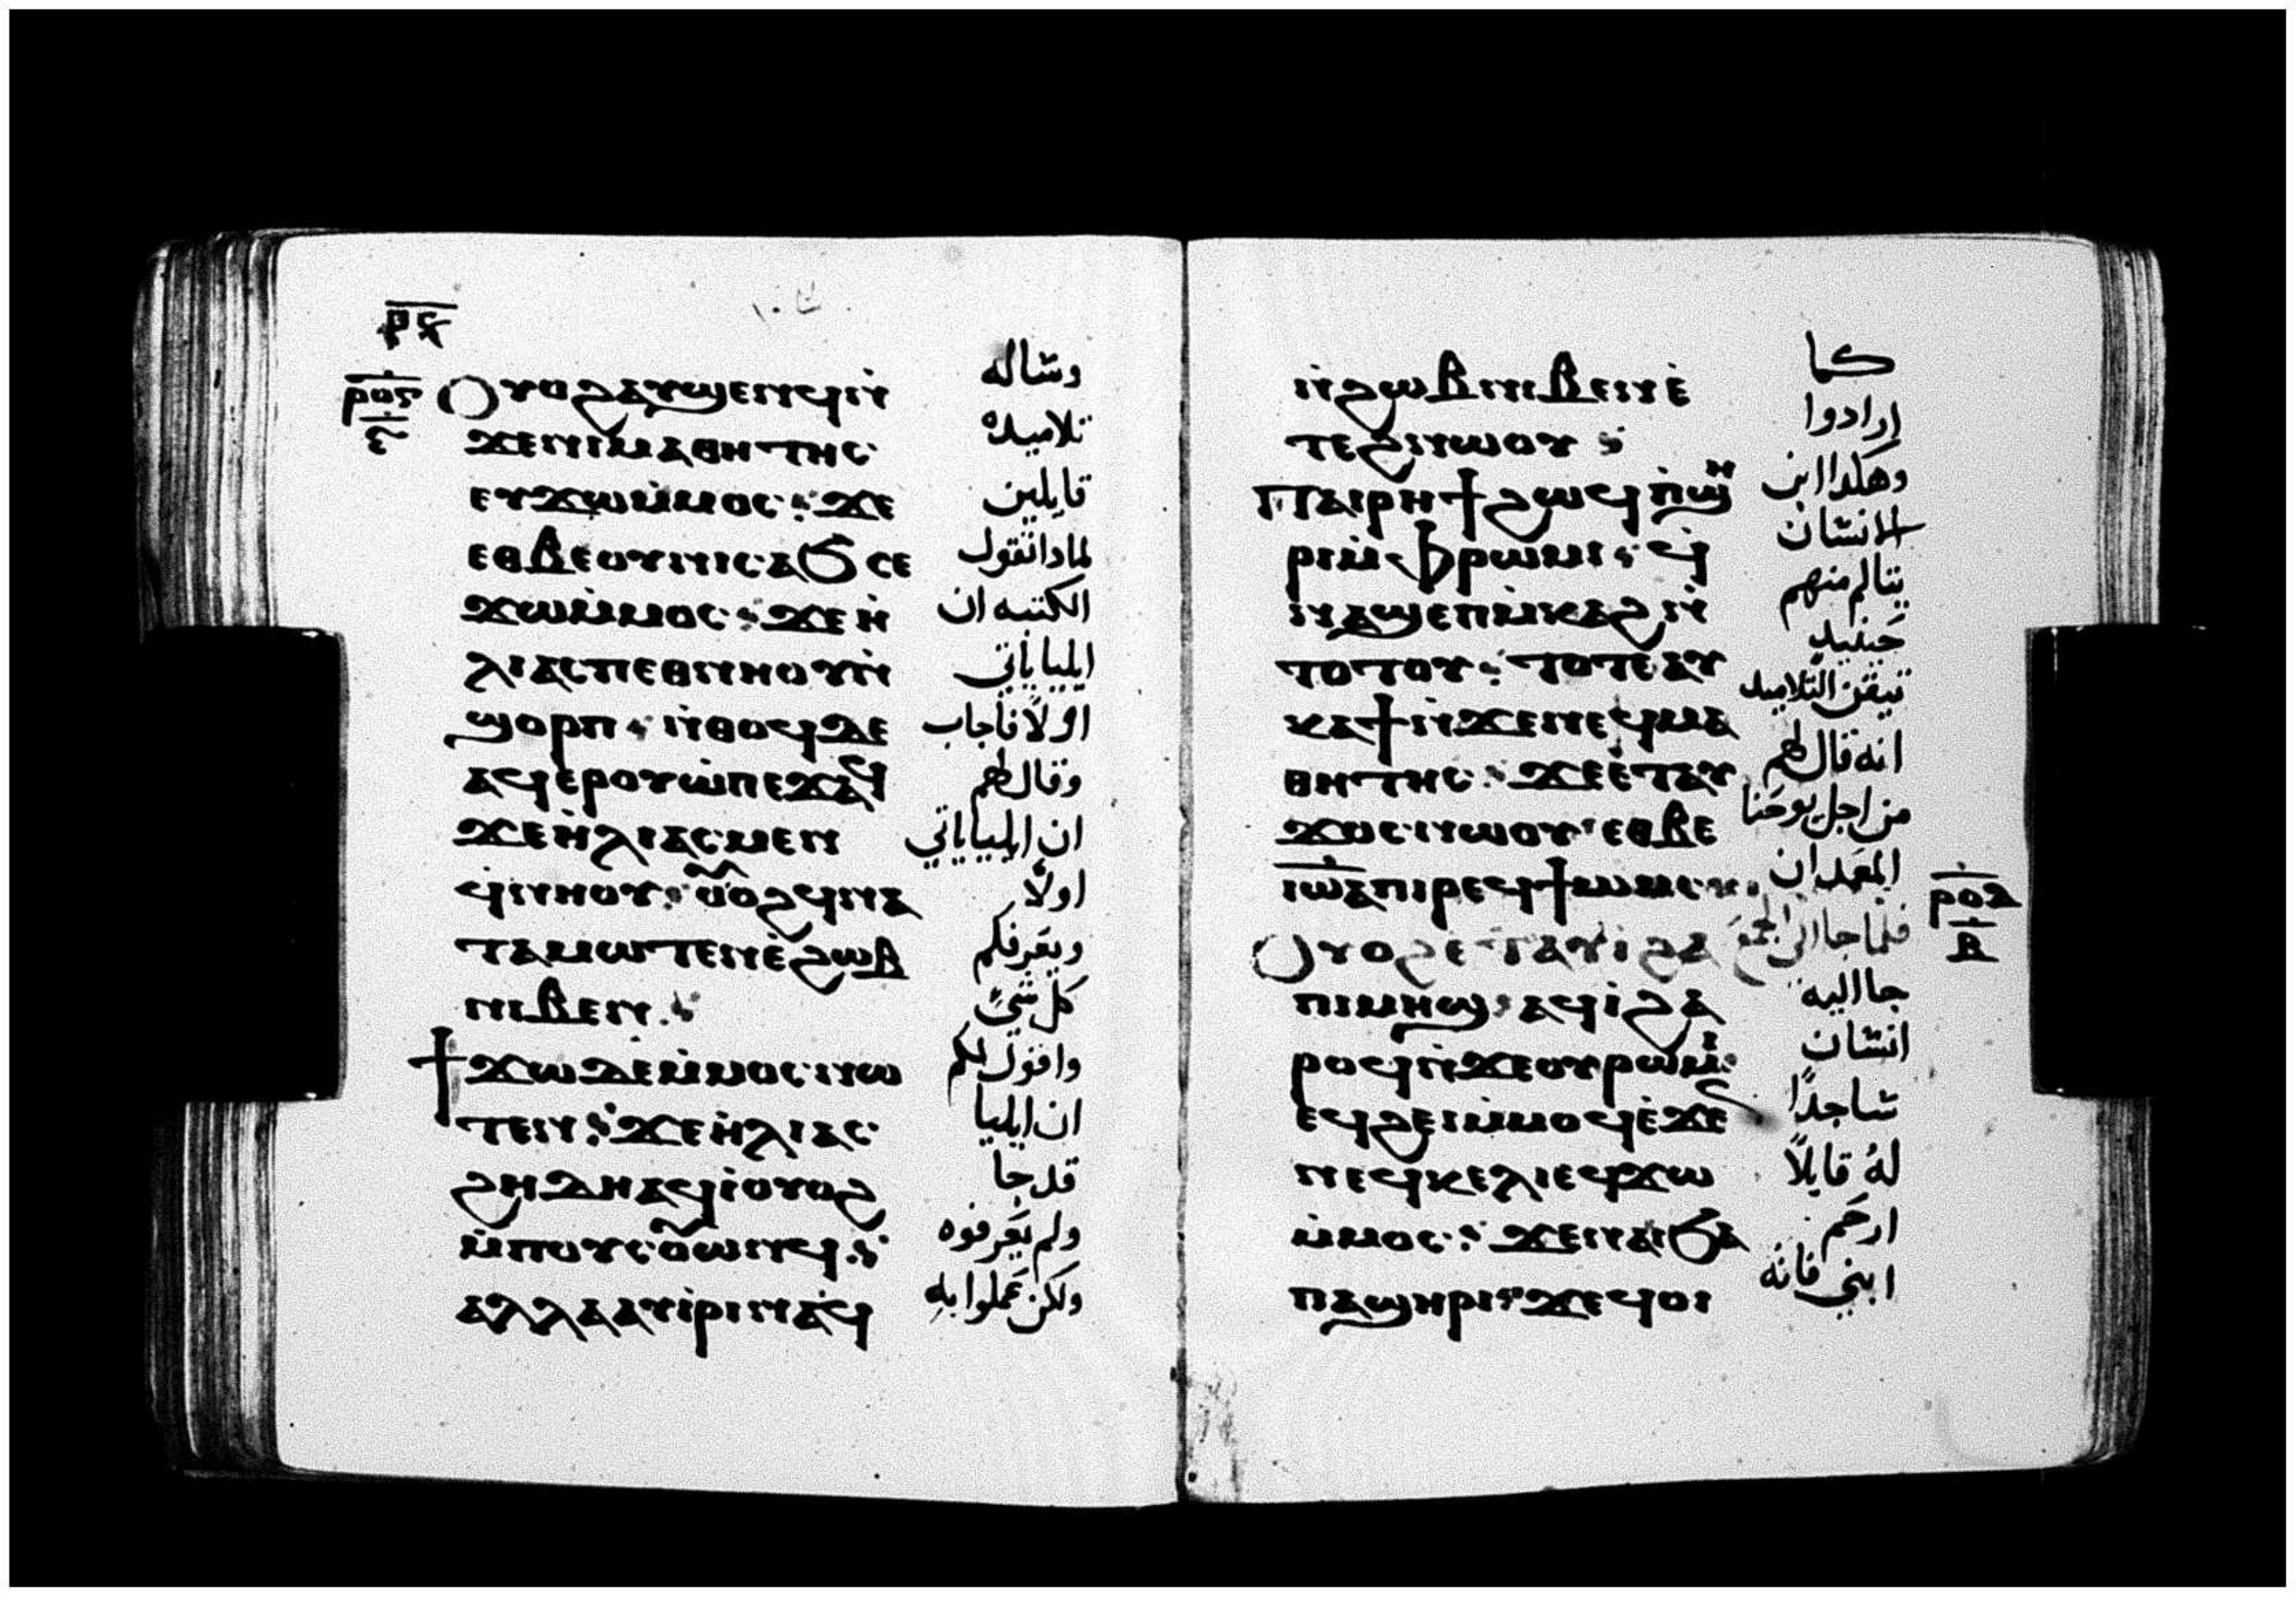 ⲣⲝ
ⲣⲟⲋ
ⲟⲩⲟϩⲁⲩϣⲉⲛϥⲛ̀
ϫⲉⲛⲓⲙⲁⲑⲏⲧⲏⲥ
ⲉⲩϫⲱⲙ̀ⲙⲟⲥ : ϫⲉ
ⲉⲑⲃⲉⲟⲩⲛⲓⲥⲁϭ ⲥⲉ
ϫⲱⲙ̀ⲙⲟⲥ : ϫⲉⲏ̀
ⲗⲓⲁⲥⲡⲉⲑⲛⲏⲟⲩⲛ̀
ϣⲟⲣⲡ : ⲛ̀ⲑⲟϥⲇⲉ
ⲁϥⲉⲣⲟⲩⲱ̀ⲡⲉϫⲁϥ
ϫⲉⲏ̀ⲗⲓⲁⲥⲙⲉⲛ
ϥⲛⲏⲟⲩ : ⲟⲩⲟϩϥⲛⲁ
ⲧⲁⲙⲱⲧⲉⲛⲉ̀ϩⲱⲃ
ⲛⲓⲃⲉⲛ :
ϯϫⲱⲇⲉⲙ̀ⲙⲟⲥⲛⲱ
ⲧⲉⲛ : ϫⲉⲏ̀ⲗⲓⲁⲥ
ϩⲏⲇⲏⲁϥⲓ̀ⲟⲩⲟϩ
ⲙ̀ⲡⲟⲩⲥⲟⲩⲱⲛϥ :
ⲁⲗⲗⲁⲁⲩⲓ̀ⲣⲓⲛⲁϥ
وساله
تلاميده
قايلين
لمادا تقول
الكتبه ان
ايليا ياتي
اولًا فاجاب
وقال لهم
ان ايليا ياتي
اولًا
ويعرفكم
كل شي
واقول لكم
ان ايليا
قد جا
ولم يعرفوه
ولكن عملوا به
ⲛ̀ϩⲱⲃⲛⲓⲃⲉⲛⲉ̀
ⲧⲉϩⲛⲱⲟⲩ :
ⲡⲁⲓⲣⲏϯϩⲱϥⲡ̀ϣⲏ
ⲣⲓⲙ̀ⲫⲣⲱⲙⲓ : ϥ
ⲛⲁϣⲉⲡⲙ̀ⲕⲁϩⲛ̀
ⲧⲟⲧⲟⲩ : ⲧⲟⲧⲉⲁⲩ
ⲕⲁϯⲛ̀ϫⲉⲛⲉϥⲙⲁ
ⲑⲏⲧⲏⲥ : ϫⲉⲉ̀ⲧⲁϥ
ϫⲟⲥⲛⲱⲟⲩ ⲉⲑⲃⲉ
ⲓⲱⲁ̀ⲡⲓⲣⲉϥϯⲱⲙⲥ
ⲟⲩⲟϩⲉ̀ⲧⲁⲩⲓ̀ϩⲁ
ⲡⲓⲙⲏϣ : ⲁϥⲓ̀ϩⲁ
ⲣⲟϥⲛ̀ϫⲉⲟⲩⲣⲱⲙⲓ :
ⲉϥϩⲉⲓⲙ̀ⲙⲟϥⲉ̀ϫⲉ
ⲛⲉϥⲕⲉⲗⲓⲉϥϫⲱ
ⲙ̀ⲙⲟⲥ : ϫⲉⲛⲁⲓϭⲁ
ⲡⲁϣⲏⲣⲓ : ϫⲉϥⲟⲓ
كما
ارادوا
وهكدا ابن
الانسان
يتالم منهم
حينيد
تيقن التلاميد
انه قال لهم
من اجل يوحنا
المعمدان
فلما جا الى الجمع
جا اليه
انسان
ساجدًا
له قايلًا
ارحم
ابني فانه
ⲣⲟⲁ
ⲃ